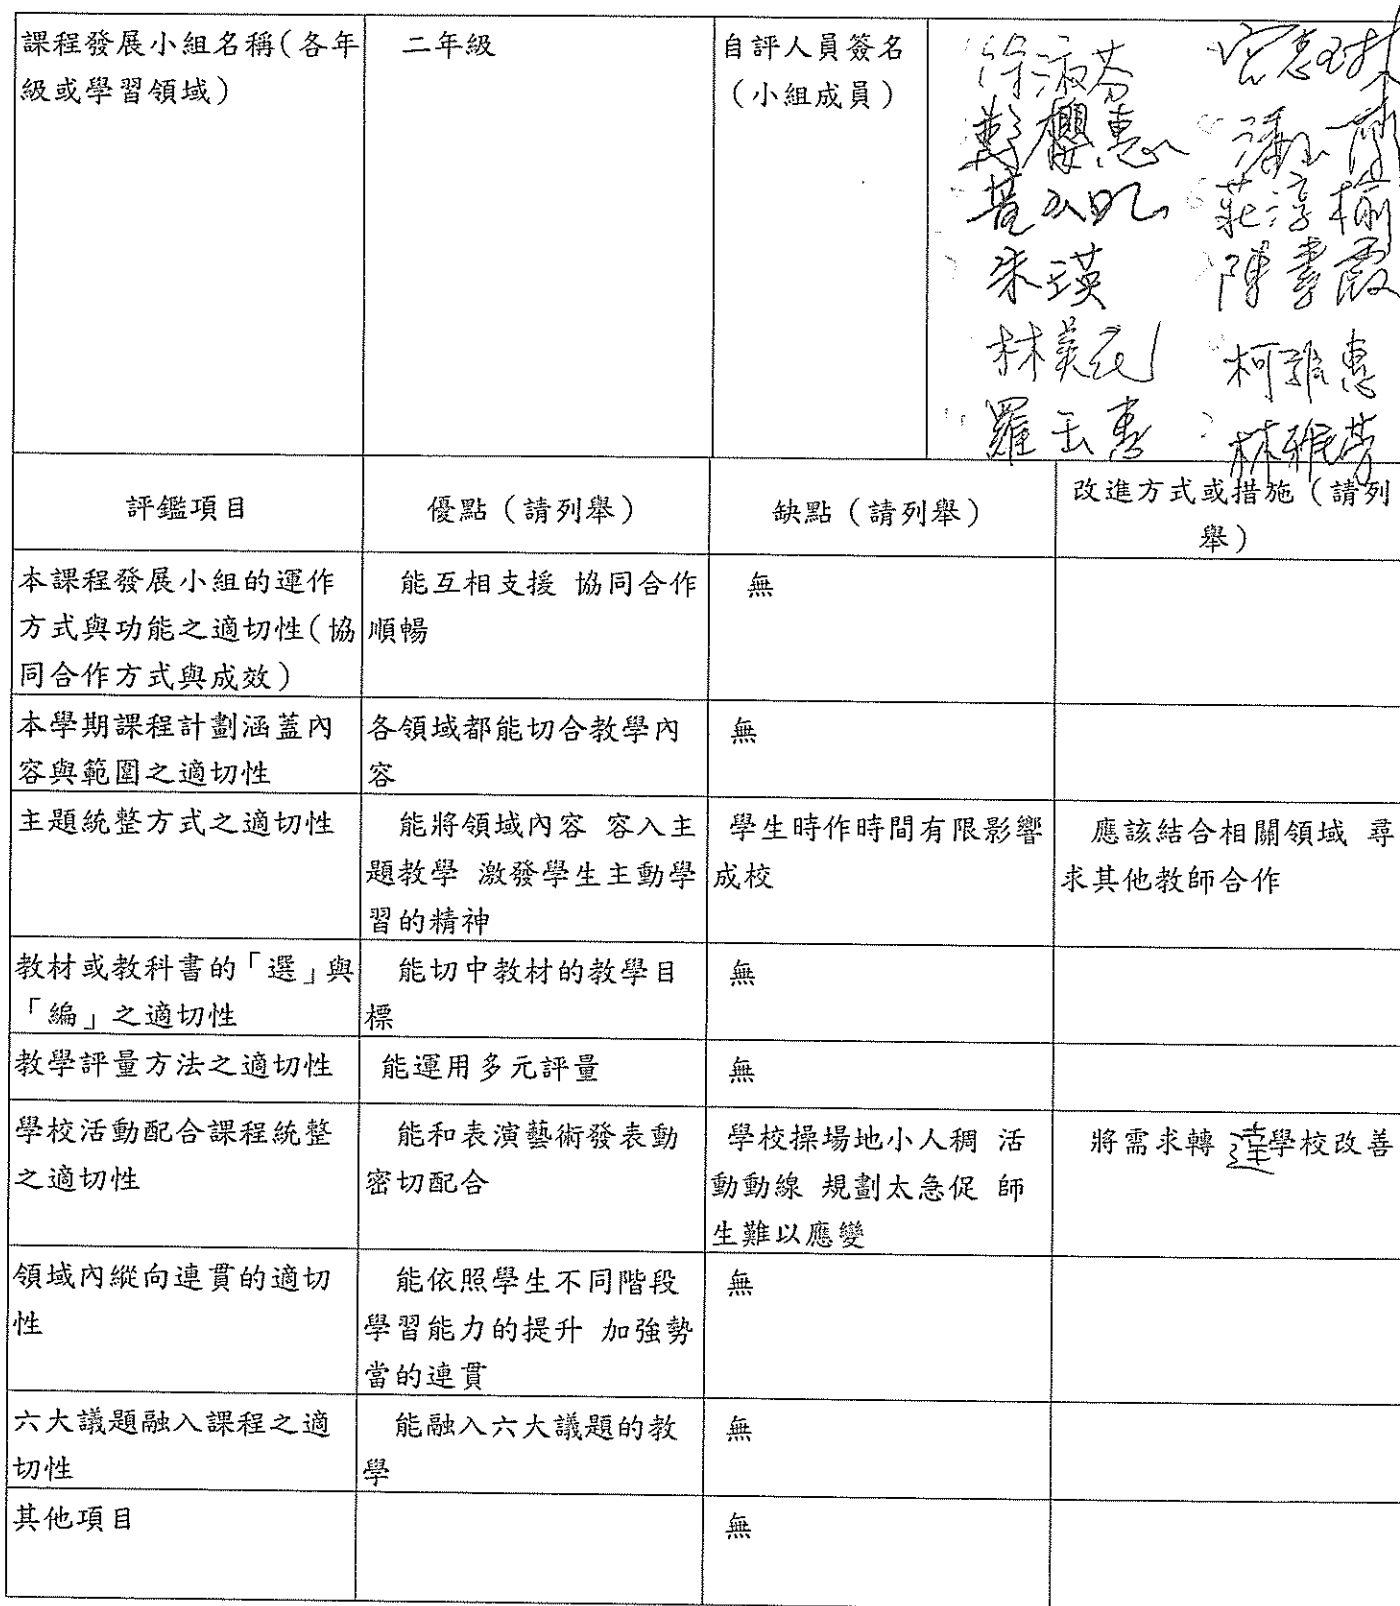 課程發展小組名稱(各年
級或學習領域)
二年級
自評人員簽名
(小組成員)
徐淑芬
鄭櫻惠
朱瑛
莊淳榆
陳書霞
林美花
柯雅惠
羅玉惠
林雅芳
評鑑項目
優點(請列舉)
缺點(請列舉)
改進方式或措施(請列
舉)
本課程發展小組的運作
方式與功能之適切性(協
同合作方式與成效)
能互相支援 協同合作
順暢
無
本學期課程計劃涵蓋內
容與範圍之適切性
各領域都能切合教學內
容
無
主題統整方式之適切性
能將領域內容 容入主
題教學 激發學生主動學
習的精神
學生時作時間有限影響
成校
應該結合相關領域 尋
求其他教師合作
教材或教科書的「選」與
「編」之適切性
能切中教材的教學目
標
無
教學評量方法之適切性
能運用多元評量
無
學校活動配合課程統整
之適切性
能和表演藝術發表動
密切配合
學校操場地小人稠 活
動動線 規劃太急促 師
生難以應變
將需求轉 達學校改善
領域內縱向連貫的適切
性
能依照學生不同階段
學習能力的提升 加強勢
當的連貫
無
六大議題融入課程之適
切性
能融入六大議題的教
學
無
其他項目
無